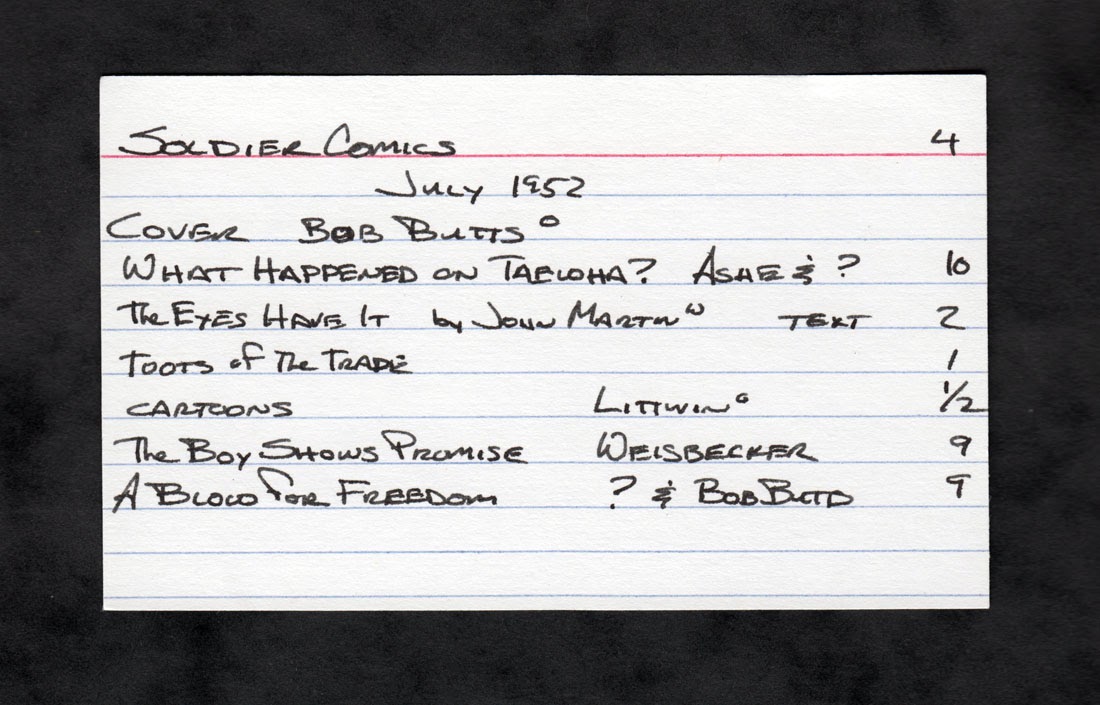 Soldier Comics 4
July 1952
Cover Bob Butts °
What Happened on Taeloha? Ashe & ? 10
The Eyes Have It by John Martin ω text 2
Toots of the Trade 1
cartoons Littwin ᴳ 1/2
The Boy Shows Promise Weisbecker 9
A Blow For Freedom ? & Bob Butts 9